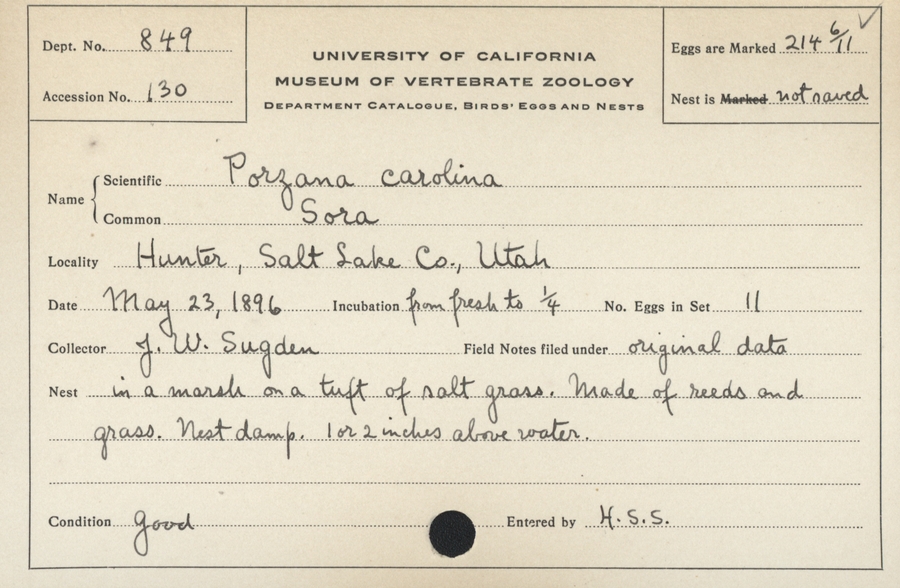 Dept. No. 849
Accession No. 130
UNIVERSITY OF CALIFORNIA
MUSEUM OF VERTEBRATE ZOOLOGY
DEPARTMENT CATALOGUE, BIRDS' EGGS AND NESTS
Eggs are Marked 214 6/11
Nest is Marked not saved
Name
Scientific Porzana carolina
Common Sora
Locality Hunter, Salt Lake Co., Utah
Date May 23, 1896 Incubation from fresh to 1/4 No. Eggs in Set 11
Collector J. W. Sugden Field Notes filed under original data
Nest in a marsh on a tuft of salt grass. Made of reeds and
grass. Nest damp. 1 or 2 inches above water.
Condition good Entered by H.S.S.